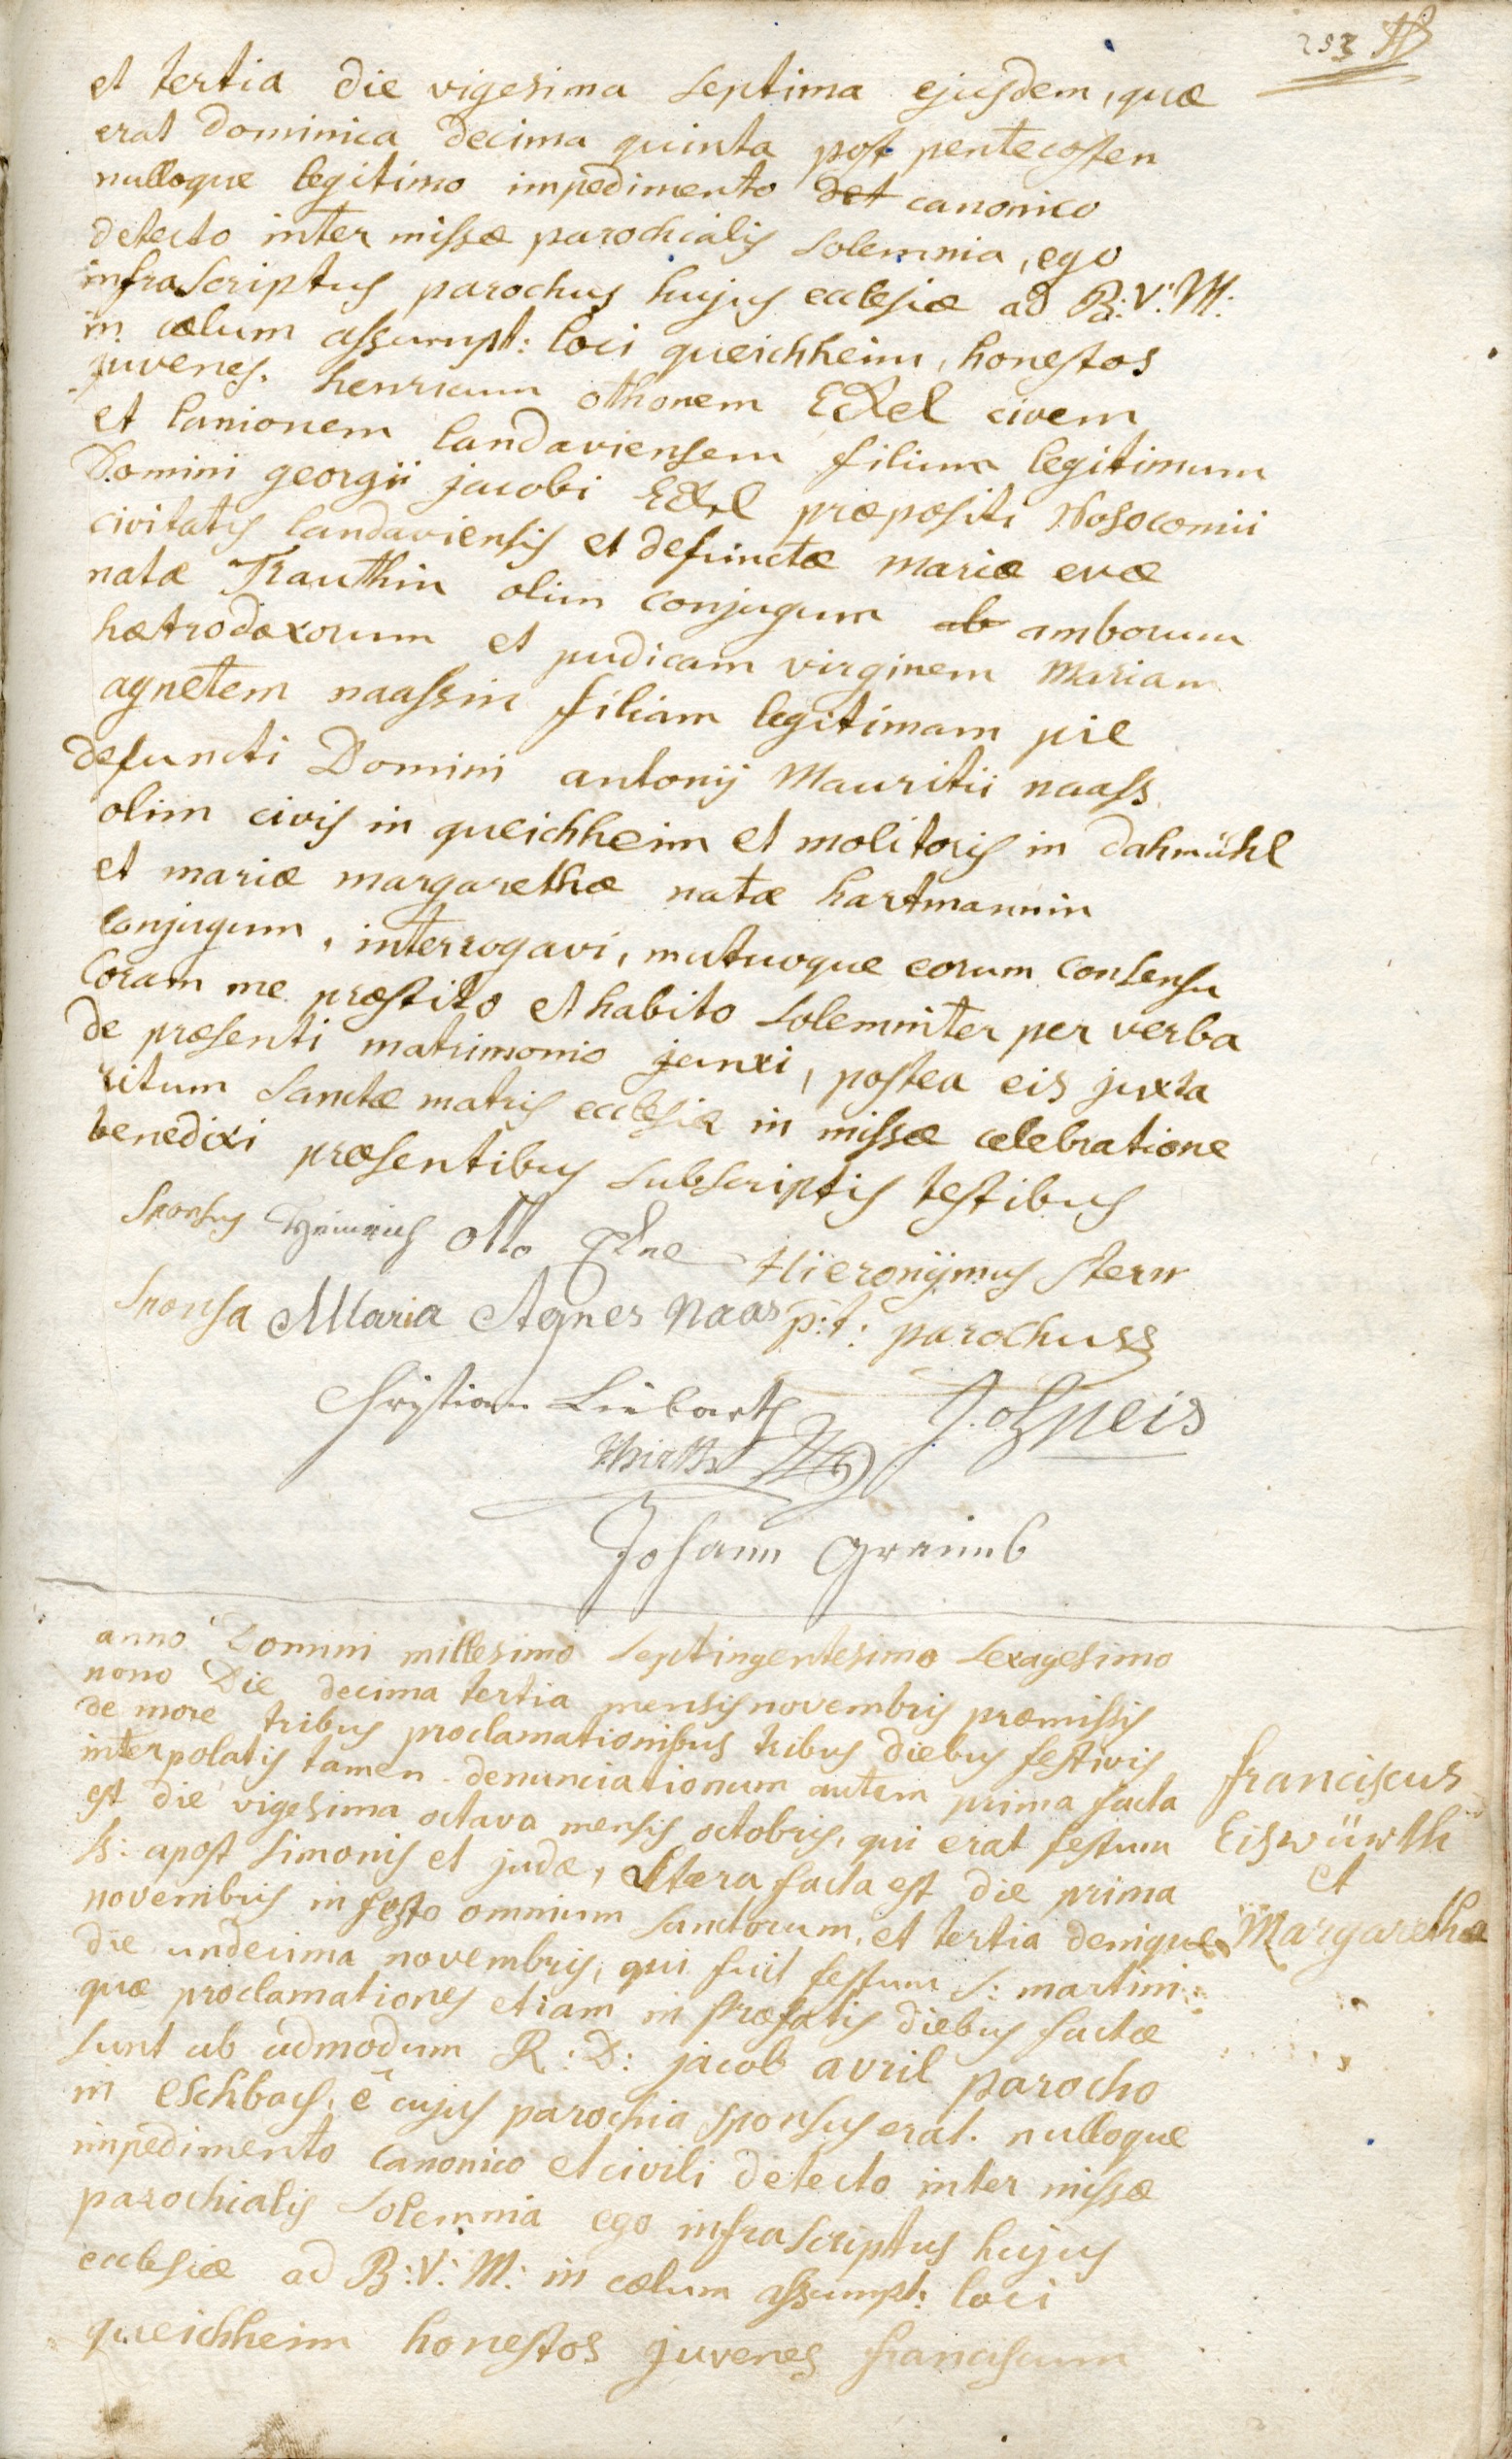 253
et tertia die vigesima septima ejusdem, quæ
erat Dominica decima quinta post pentecosten
nulloque legitimo impedimento det canonico
detecto inter missæ parochialis solemnia, ego
infrascriptus parochus hujus ecclesiæ ad B: V: M:
in cælum assumpt: loci queichheim, honestos
juvenes. henricum othonem Eckel civem
et lanionem landaviensem filium legitimum
Domini georgii jacobi Eckel præpositi Nosocomii
civitatis landaviensis et defunctæ mariæ evæ
natæ Trauthin olim conjugum ab amborum
hætrodoxorum et pudicam virginem Mariam
agnetem naassin filiam legitimam pie
defuncti Domini antonij Mauritii naass
olim civis in queichheim et molitoris in dahmühl
et mariæ margarethæ natæ hartmannin
conjugum, interrogavi, mutuoque eorum consensu
coram me præstito et habito solemniter per verba
de præsenti matrimonio junxi, postea eis juxta
ritum sanctæ matris ecclesiæ in missæ celebratione
benedixi præsentibus subscriptis testibus
Sponsus Heinrich Otto
Hieronijmus Stern
Sponsa Maria Agnes Naas p: t: parochus
Christian
Johann
anno Domini millesimo septingentesimo sexagesimo
nono Die decima tertia mensis novembris præmissis
de more tribus proclamationibus tribus diebus festivis
interpolatis tamen denunciationum autem prima facta
est die vigesima octava mensis octobris, qui erat festum
ss: apost simonis et judæ, altera facta est die prima
novembris in festo omnium sanctorum, et tertia denique
die undecima novembris, qui fuit festum s: martini
quæ proclamationes etiam in præfatis diebus factæ
sunt ab admodum R: D: jacob avril parocho
in Eschbach, è cujus parochia sponsus erat. nulloque
impedimento canonico et civili detecto inter missæ
parochialis solemnia ego infrascriptus hujus
ecclesiæ ad B: V: M: in cælum assumpt: loci
queichheim honestos juvenes franciscum
franciscus
Eiswürth
et
Margaretha